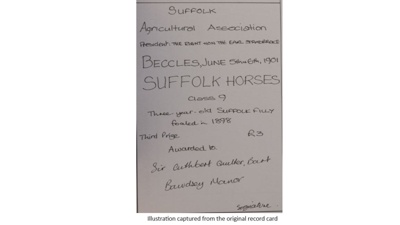 SUFFOLK
Agricultural Association
PRESIDENT. THE RIGHT HON THE EARL
BECCLES, JUNE 5th & 6th, 1901
SUFFOLK HORSES
Class 9
Three-year-old SUFFOLK FILLY
foaled in 1898
Third Prize £3
Awarded to
Sir Cuthbert Quilter, Bart
Bawdsey Manor
Illustration captured from the original record card